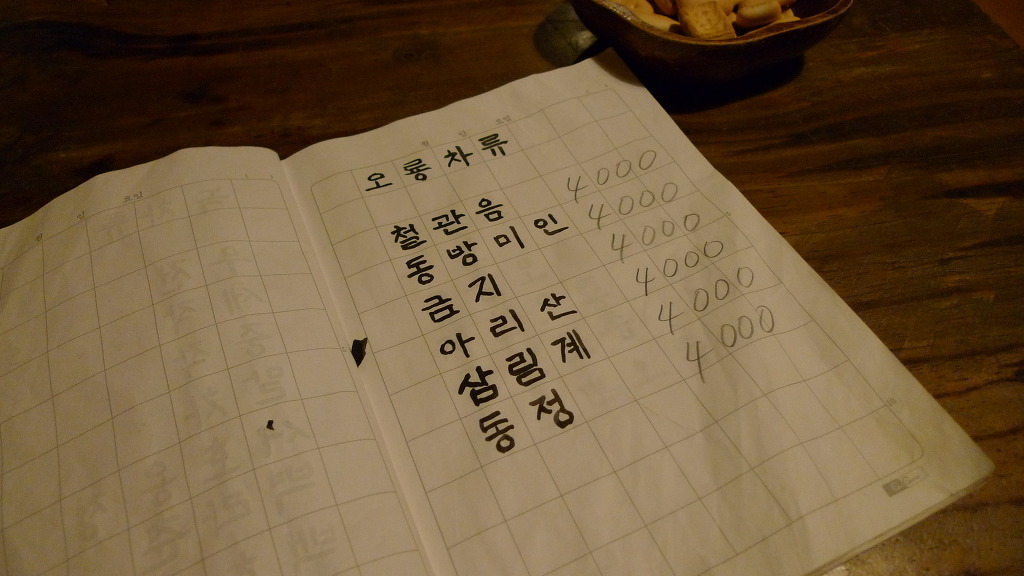 오룡차류
철관음 4000
동방미인 4000
금지 4000
아리산 4000
삼림계 4000
동정 4000